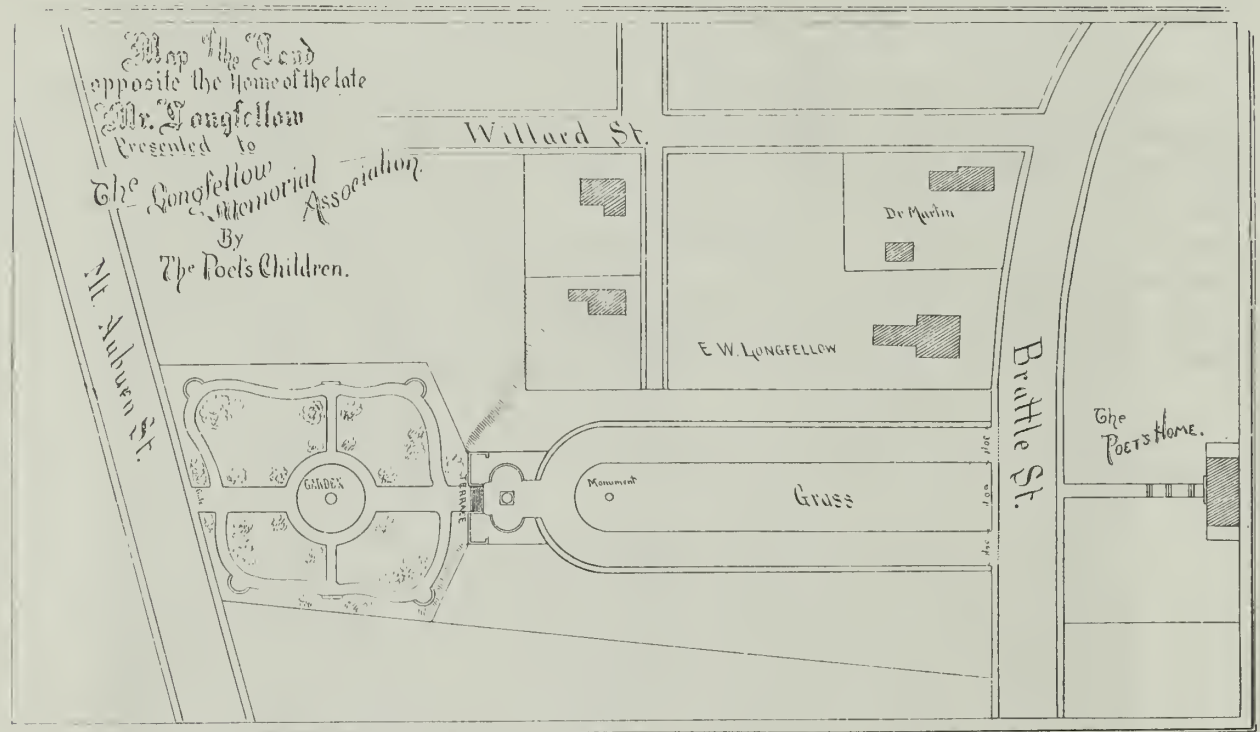 Map of the Land
opposite the Home of the late
Mr. Longfellow
Presented to
The Longfellow
Memorial
Association.
By
The Poet's Children.
Willard St.
Dr Martin
E W. LONGFELLOW
Mt. Auburn St.
Brattle St.
The
POET'S HOME.
GARDEN
TERRACE
Monument
Grass
Gate